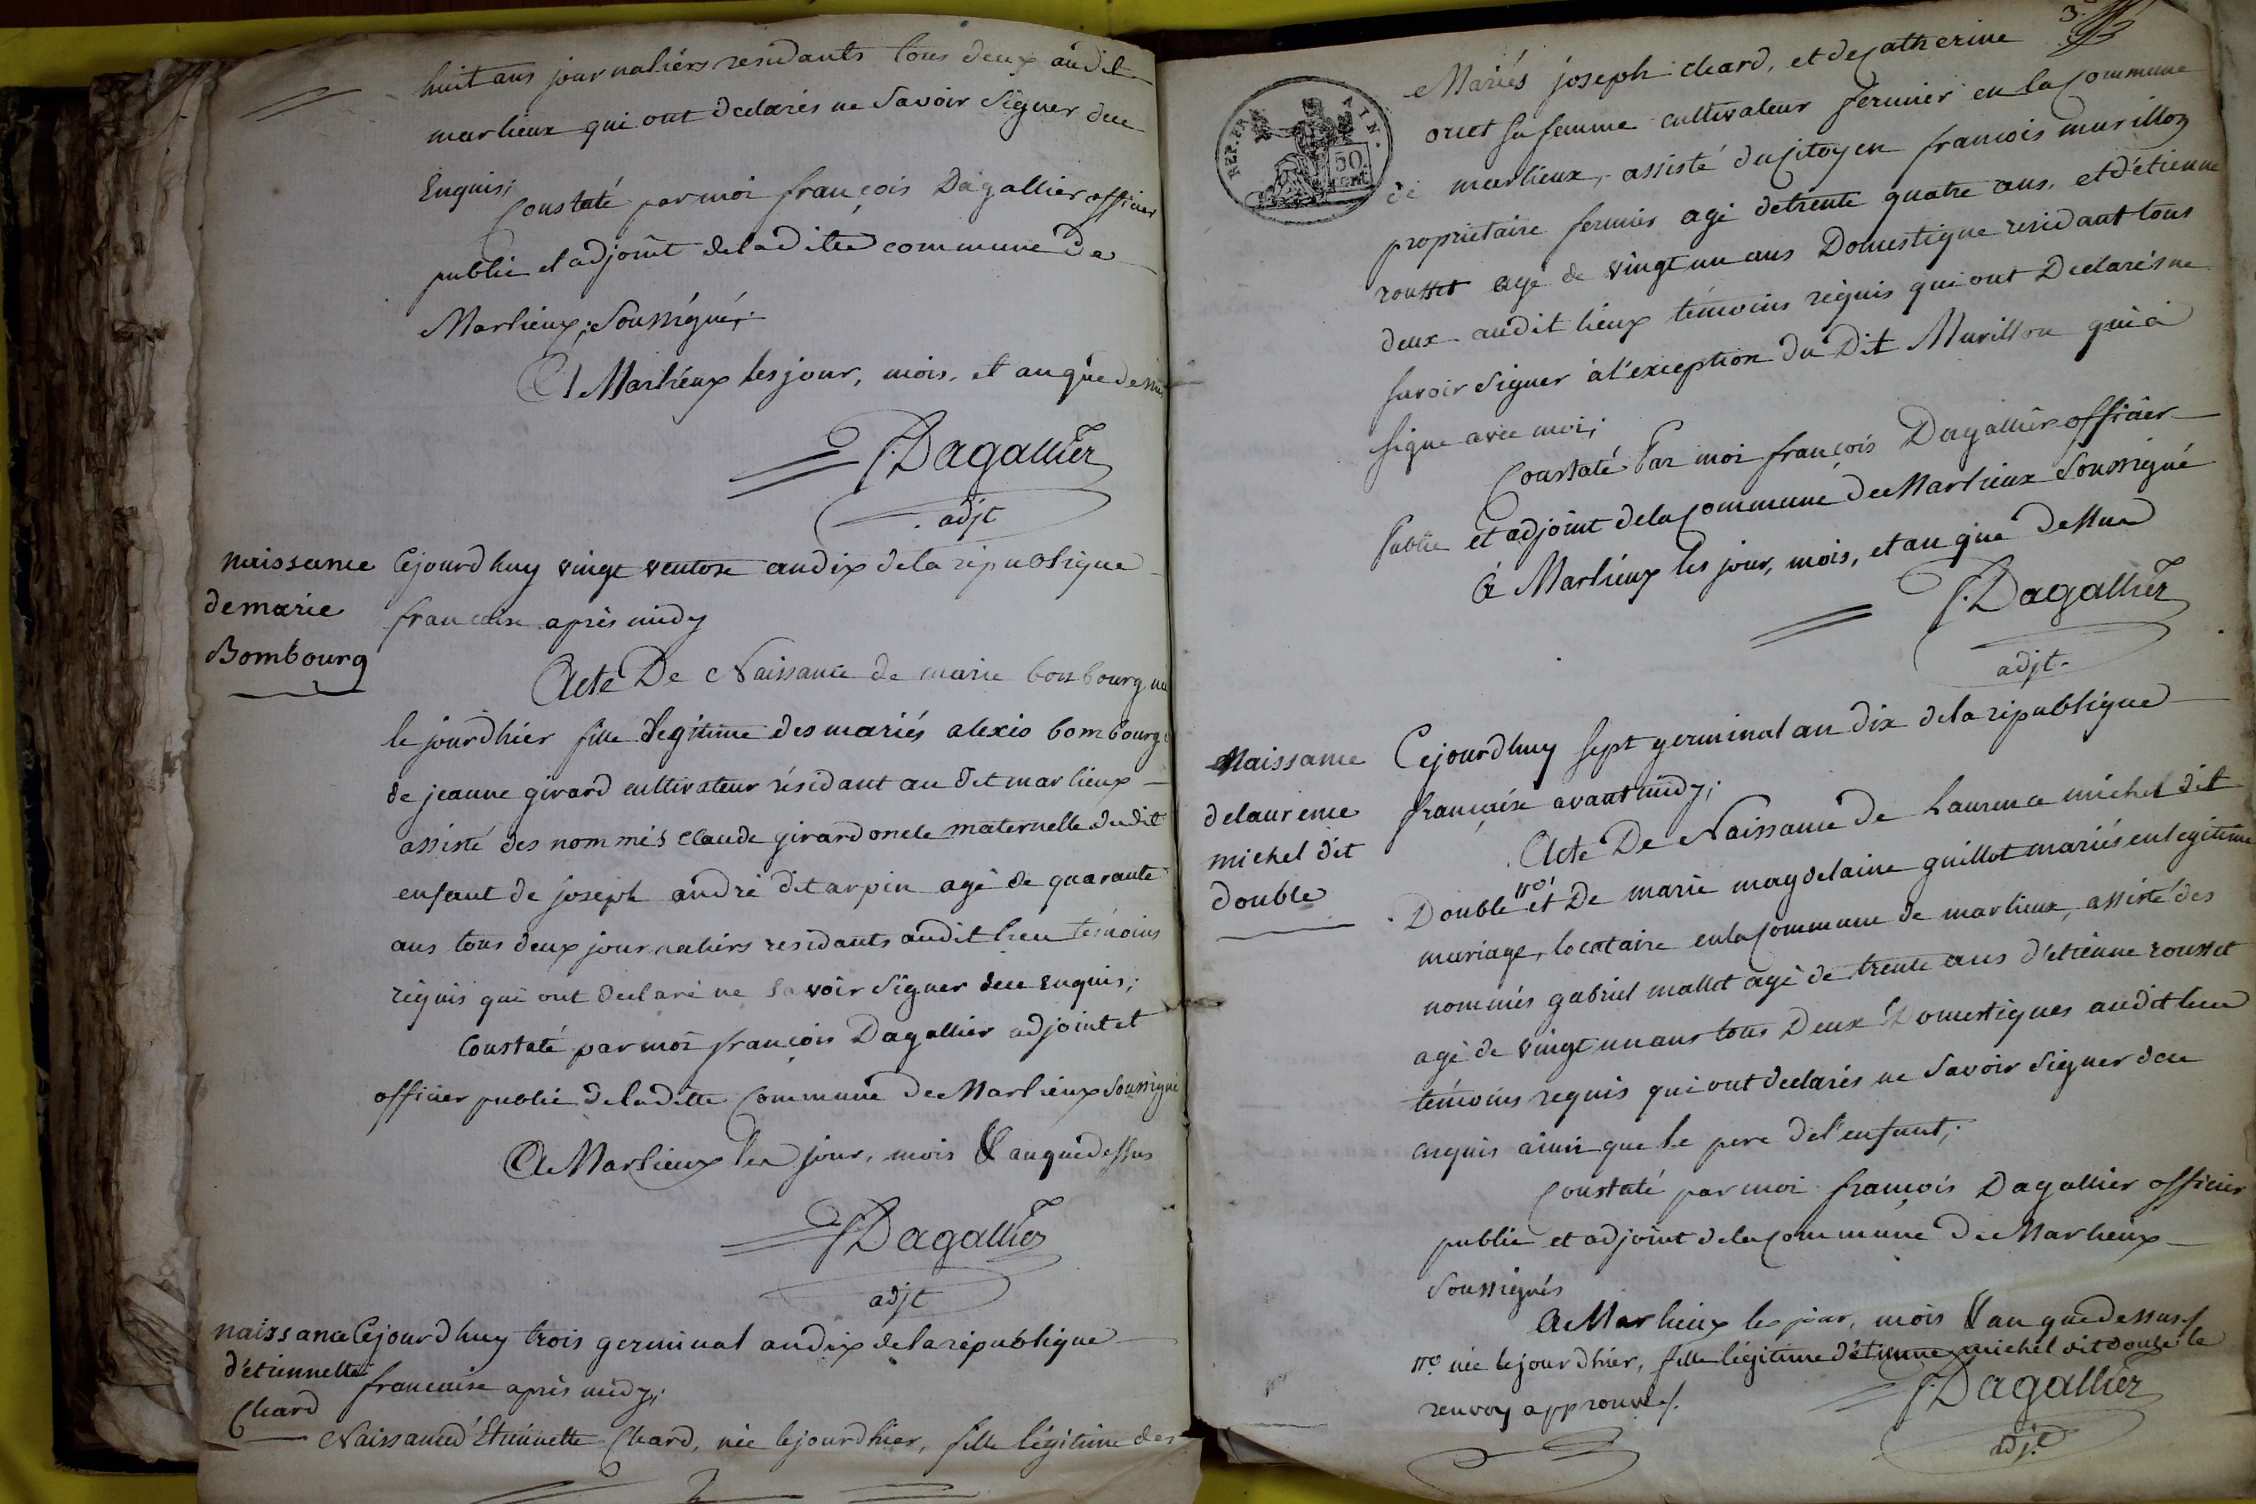 huit ans journaliers residants tous deux audit
marlieux qui ont declarés ne Savoir Signer dece
Enquis;
Constaté par moi françois Dagallier officier
public et adjoint de laditte commune de
Marlieux, Soussigné;
A Marlieux les jour, mois, et an que dessus
f. Dagallier
adjt
naissance
de marie
Bombourg
Cejourdhuy vingt ventose an dix de la republique
francaise après midy
Acte De Naissance de marie bombourg née
le jourdhier fille légitime des mariés alexis bombourg et
de jeanne girard cultivateur résidant au dit marlieux
assisté des nommés Claude girard oncle maternelle dudit
enfant de joseph andré dit arpin agé de quarante
ans tous deux journaliers residants audit lieu témoins
réquis qui ont declaré ne savoir Signer dece enquis;
Constaté par moi françois Dagallier adjoint et
officier public de laditte Commune de Marlieux Soussigné
A Marlieux les jour, mois & an que dessus
f. Dagallier
adjt
naissance
d'étiennette
Chard
Cejourdhuy trois germinal an dix de la république
francaise après midy;
Naissance d'Etiennette Chard, née le jourdhier, fille légitime des
3.
REP. FRA.
50
CENT.
Mariés joseph chard, et de Catherine
oret sa femme cultivateur fermier en la Commune
de marlieux, assisté du Citoyen francois murillon
proprietaire fermier agé de trente quatre ans, et d'étienne
rousset agé de vingt un ans Domestique residant tous
deux audit lieux témoins réquis qui ont Declarés ne
savoir signer à l'exception du Dit Murillon qui a
signe avec moi;
Constaté Par moi françois Dagallier officier
Public et adjoint de la Commune de Marlieux Soussigné
A Marlieux les jour, mois, et an que dessus
f. Dagallier
adjt.
Naissance
de laurence
michel dit
double
Cejourdhuy sept germinal an dix de la république
française avant midy;
Acte De Naissance De Laurence michel dit
Double et De marie magdelaine guillot mariés en légitime
mariage, locataire en la Commune de marlieux, assisté des
nommés gabriel mallet agé de trente ans d'étienne rousset
agé de vingt un ans tous Deux Domestiques audit lieu
témoins requis qui ont declarés ne Savoir Signer dece
enquis ainsi que le pere de l'enfant;
Constaté par moi françois Dagallier officier
public et adjoint de la Commune de Marlieux
Soussignés
A Marlieux les jour, mois & an que dessus
née le jour dhier, fille légitime d'étienne michel dit double le
renvoy approuvé
f. Dagallier
adjt